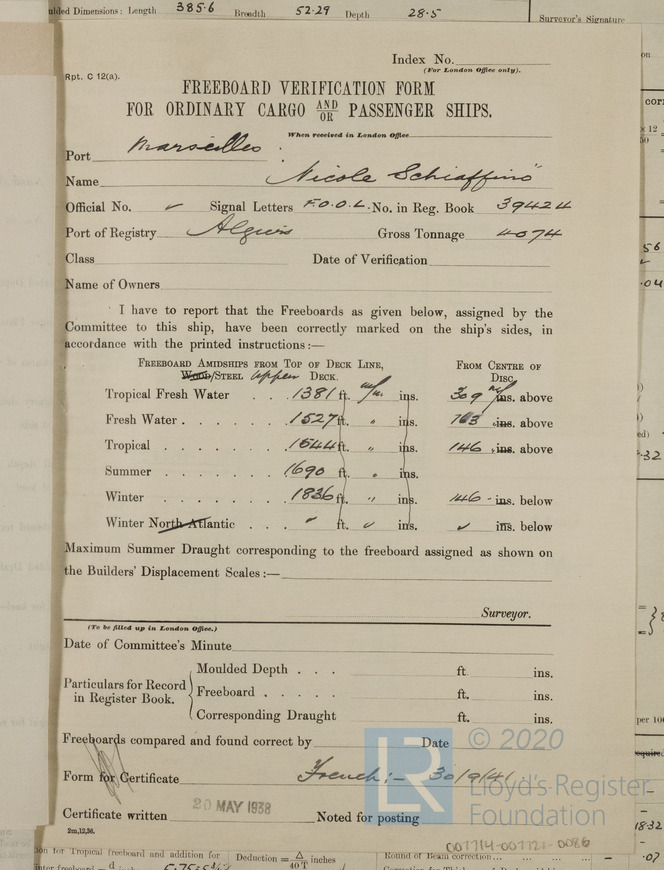 ulded Dimensions: Length 385.6 Breadth 52.29 Depth 28.5
Surveyor's Signature
Index No.
(For London Office only).
Rpt. C 12(a).
FREEBOARD VERIFICATION FORM
FOR ORDINARY CARGO AND/OR PASSENGER SHIPS.
When received in London Office
Port Marseilles
Name "Nicole Schiaffino"
Official No. ✓ Signal Letters F.O.O.L. No. in Reg. Book 39424
Port of Registry Algiers Gross Tonnage 4074
Class Date of Verification
Name of Owners
I have to report that the Freeboards as given below, assigned by the
Committee to this ship, have been correctly marked on the ship's sides, in
accordance with the printed instructions:—
FREEBOARD AMIDSHIPS FROM TOP OF DECK LINE, FROM CENTRE OF
WOOD/STEEL Upper DECK. DISC.
Tropical Fresh Water . . . 1381 ft. m/m ins. 309 m/m ins. above
Fresh Water . . . . . . . 1527 ft. " ins. 163 " ins. above
Tropical . . . . . . . 1544 ft. " ins. 146 " ins. above
Summer . . . . . . . 1690 ft. " ins.
Winter . . . . . . . 1836 ft. " ins. 146 - ins. below
Winter North Atlantic . . . ✓ ft. ✓ ins. ✓ ins. below
Maximum Summer Draught corresponding to the freeboard assigned as shown on
the Builders' Displacement Scales:—
Surveyor.
(To be filled up in London Office.)
Date of Committee's Minute
Particulars for Record in Register Book.
Moulded Depth . . . ft. ins.
Freeboard . . . . . ft. ins.
Corresponding Draught ft. ins.
Freeboards compared and found correct by Date
Form for Certificate French:- 30/9/41
Certificate written 20 MAY 1938 Noted for posting
2m,12,36.
© 2020
LR
Lloyd's Register
Foundation
007714-007721-0086
ion for Tropical freeboard and addition for
Deduction = Δ/40 T inches
Round of Beam correction